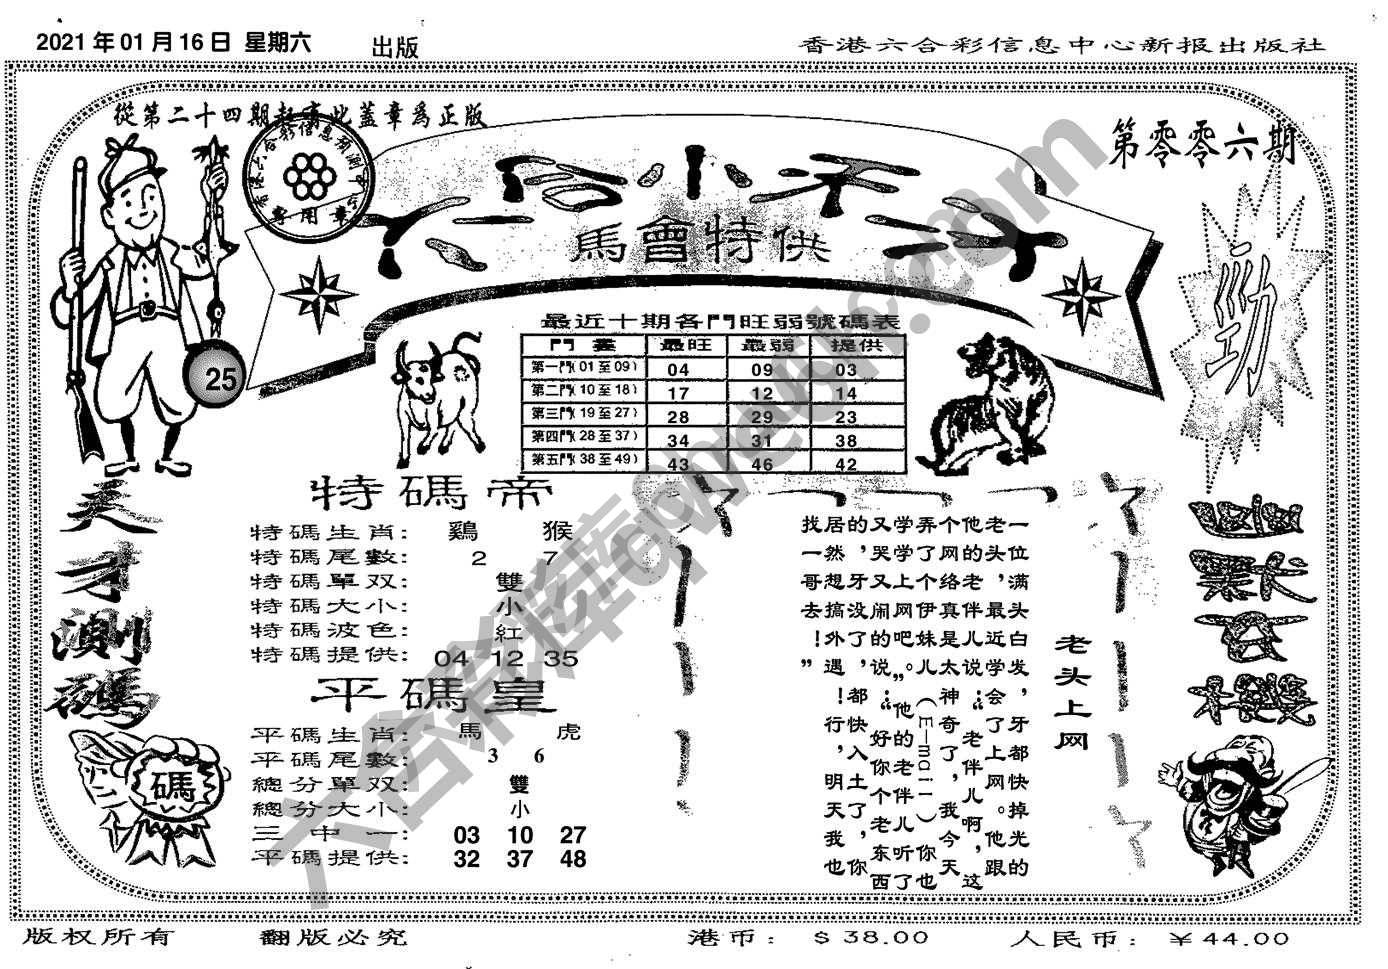 2021 年 01 月 16 日 星期六 出版
香港六合彩信息中心新报出版社
從第二十四期起蓋此蓋章為正版
第零零六期
馬會特供
勁
25
最近十期各門旺弱號碼表
門 最旺 最弱 提供
第一門(01 至 09) 04 09 03
第二門(10 至 18) 17 12 14
第三門(19 至 27) 28 29 23
第四門(28 至 37) 34 31 38
第五門(38 至 49) 43 46 42
天才測碼
碼
特碼帝
特碼生肖: 鷄 猴
特碼尾數: 2 7
特碼單双: 雙
特碼大小: 小
特碼波色: 紅
特碼提供: 04 12 35
平碼皇
平碼生肖: 馬 虎
平碼尾數: 3 6
總分單双: 雙
總分大小: 小
三中一: 03 10 27
平碼提供: 32 37 48
老头上网
一位满头白发，牙都快掉光的
老头，最近学会了上网。他跟
他的老伴儿说：“老伴儿啊，这
个网络真是太神奇了，我今天
弄了个伊妹儿（E—mail）你也
学学上网吧。”他的老伴儿听了
又哭又闹的说：“好你个老东西
的，牙没了，都快入土了，你
居然想搞外遇！行，明天我也
找一哥去！”
六合彩库
版权所有 翻版必究
港币：＄38.00 人民币：￥44.00